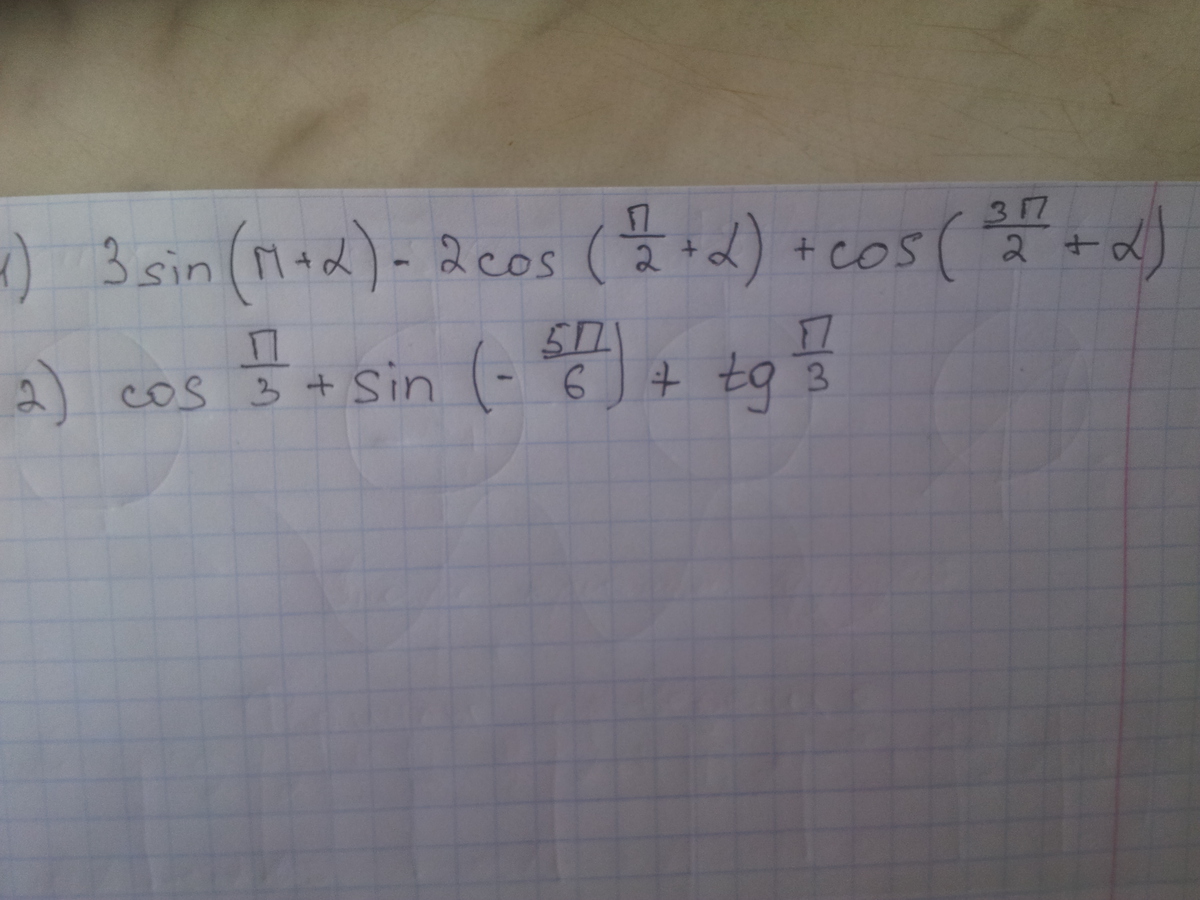 1) 3sin(π+α)-2cos(π/2+α)+cos(3π/2+α)
2) cos π/3+sin(-5π/6)+tg π/3